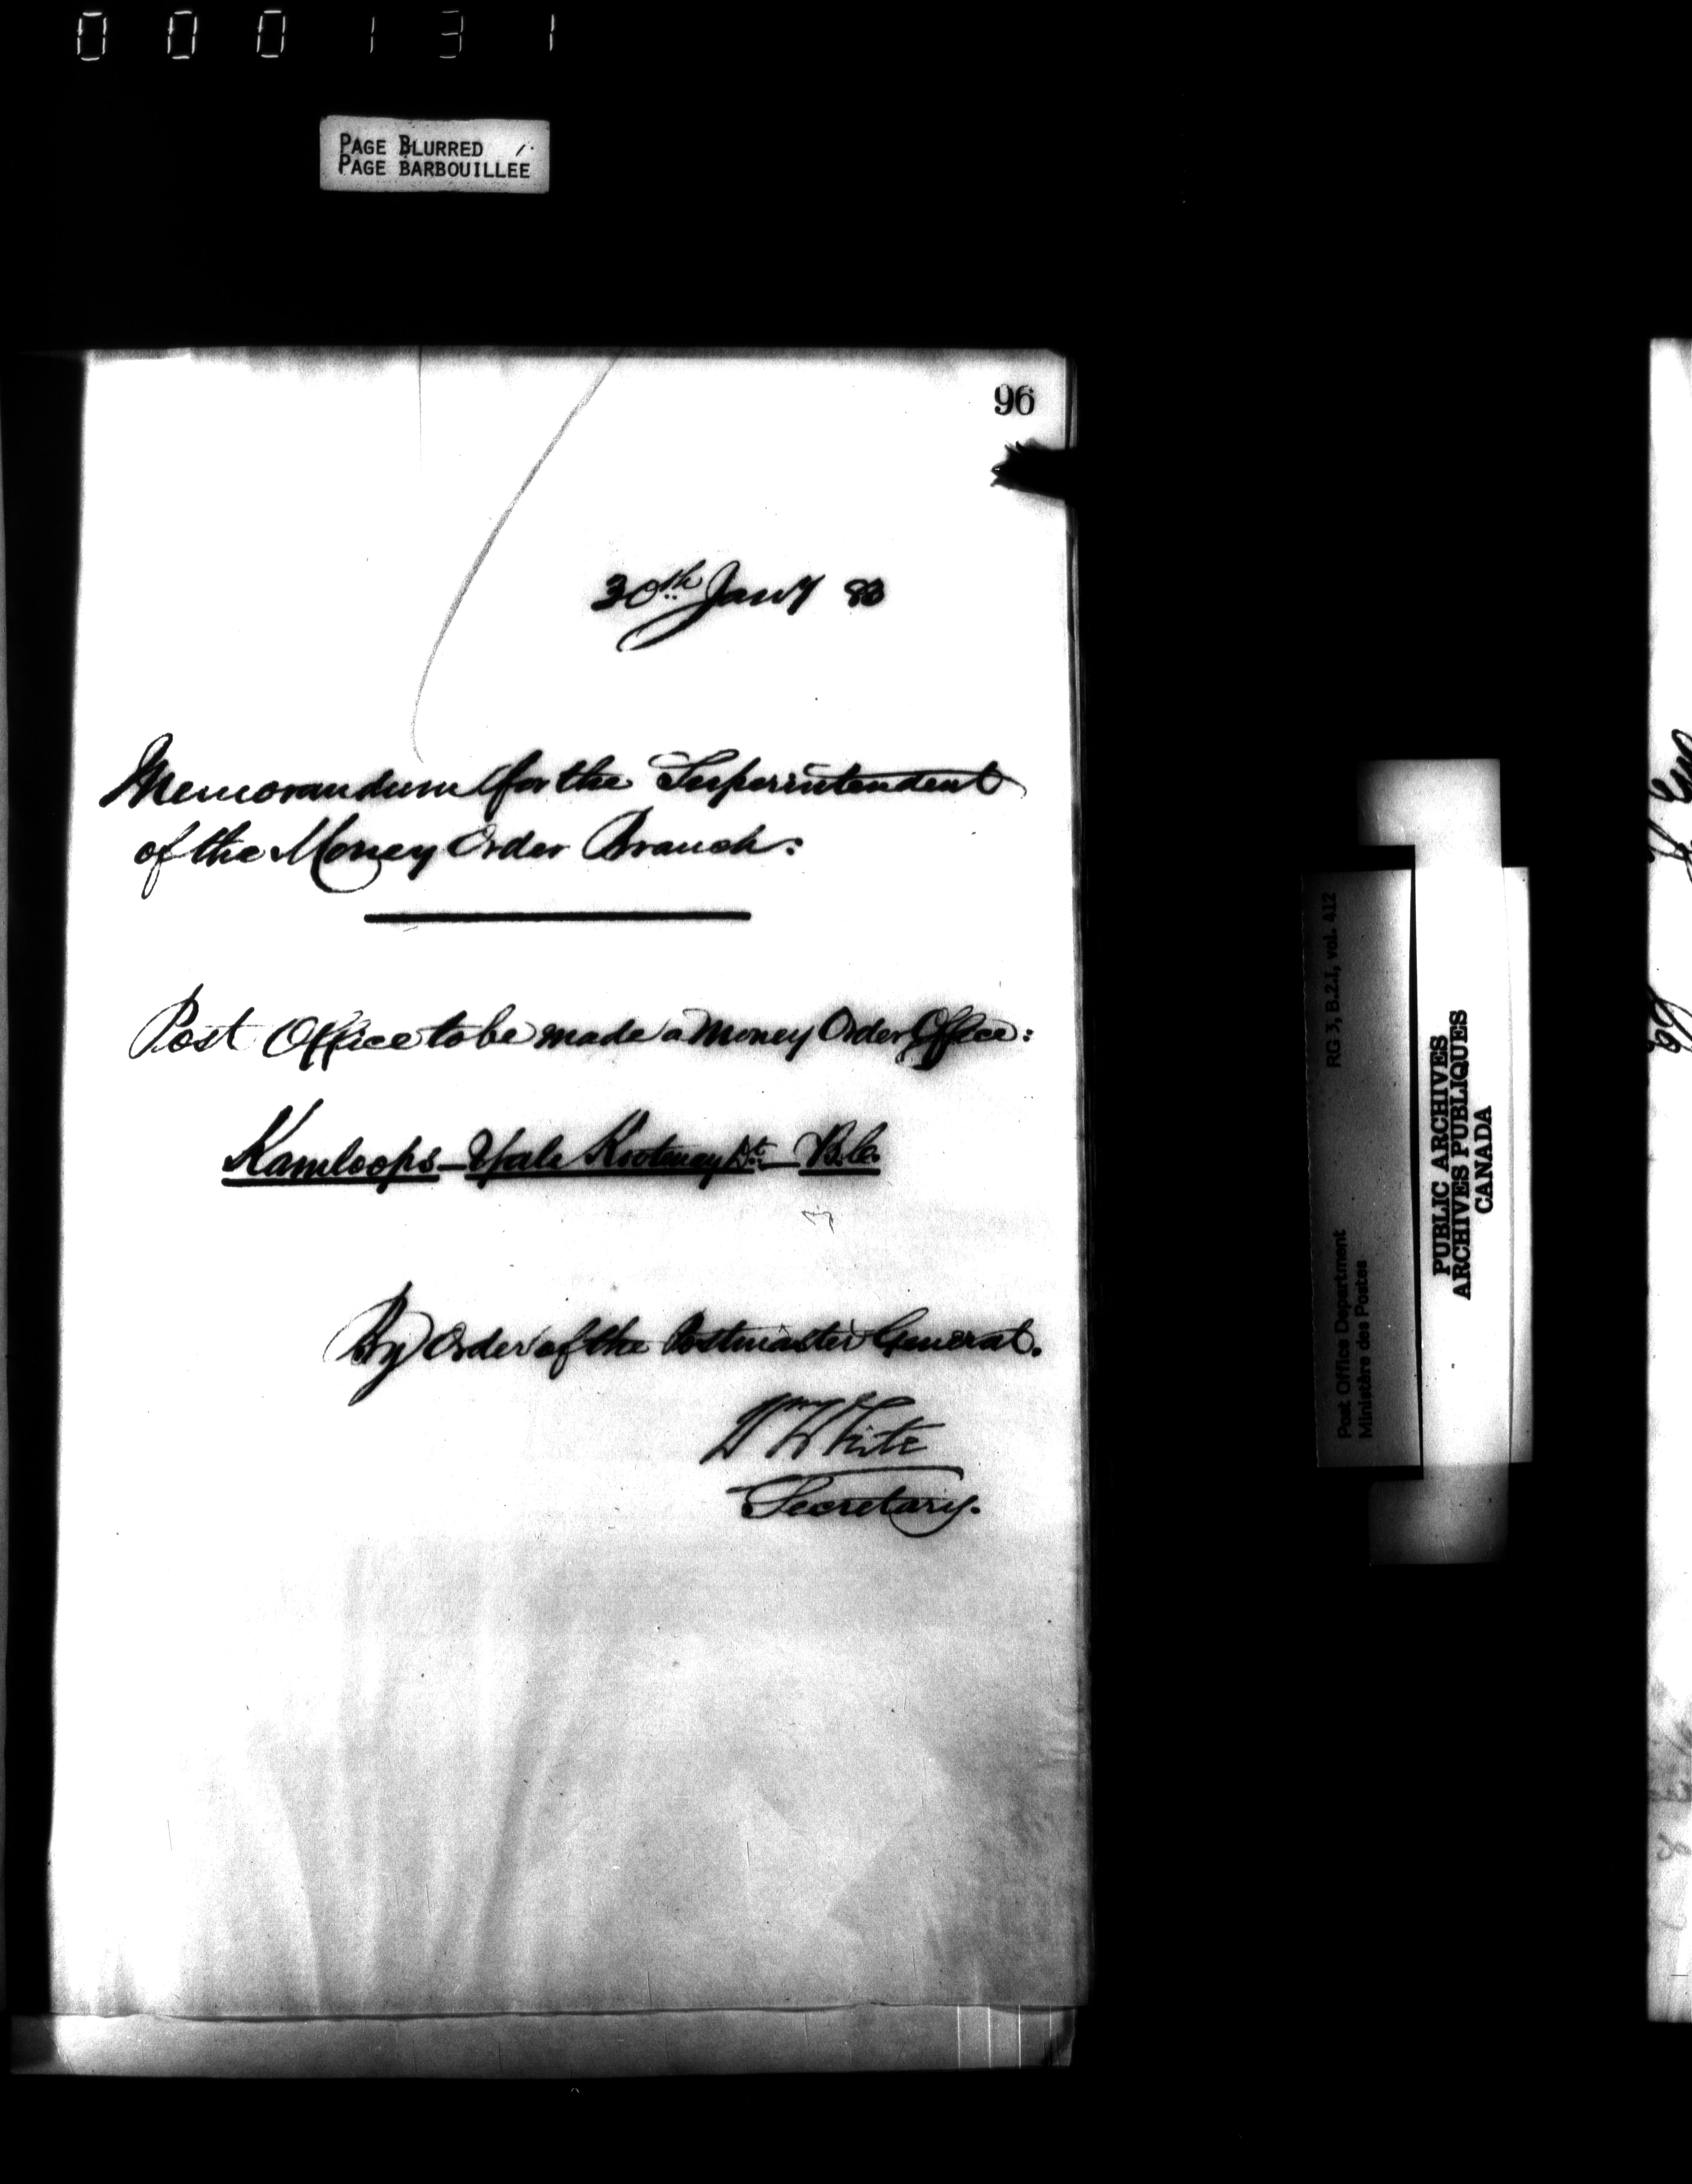 000131
PAGE BLURRED
PAGE BARBOUILLEE
96
30th Jany 83
Memorandum for the Superintendent
of the Money Order Branch:
Post Office to be made a Money Order Office:
Kamloops - Yale Kootenay Dt. - B.C.
By Order of the Postmaster General.
Wm White
Secretary.
RG 3, B.2.I, vol. 412
Post Office Department
Ministère des Postes
PUBLIC ARCHIVES
ARCHIVES PUBLIQUES
CANADA